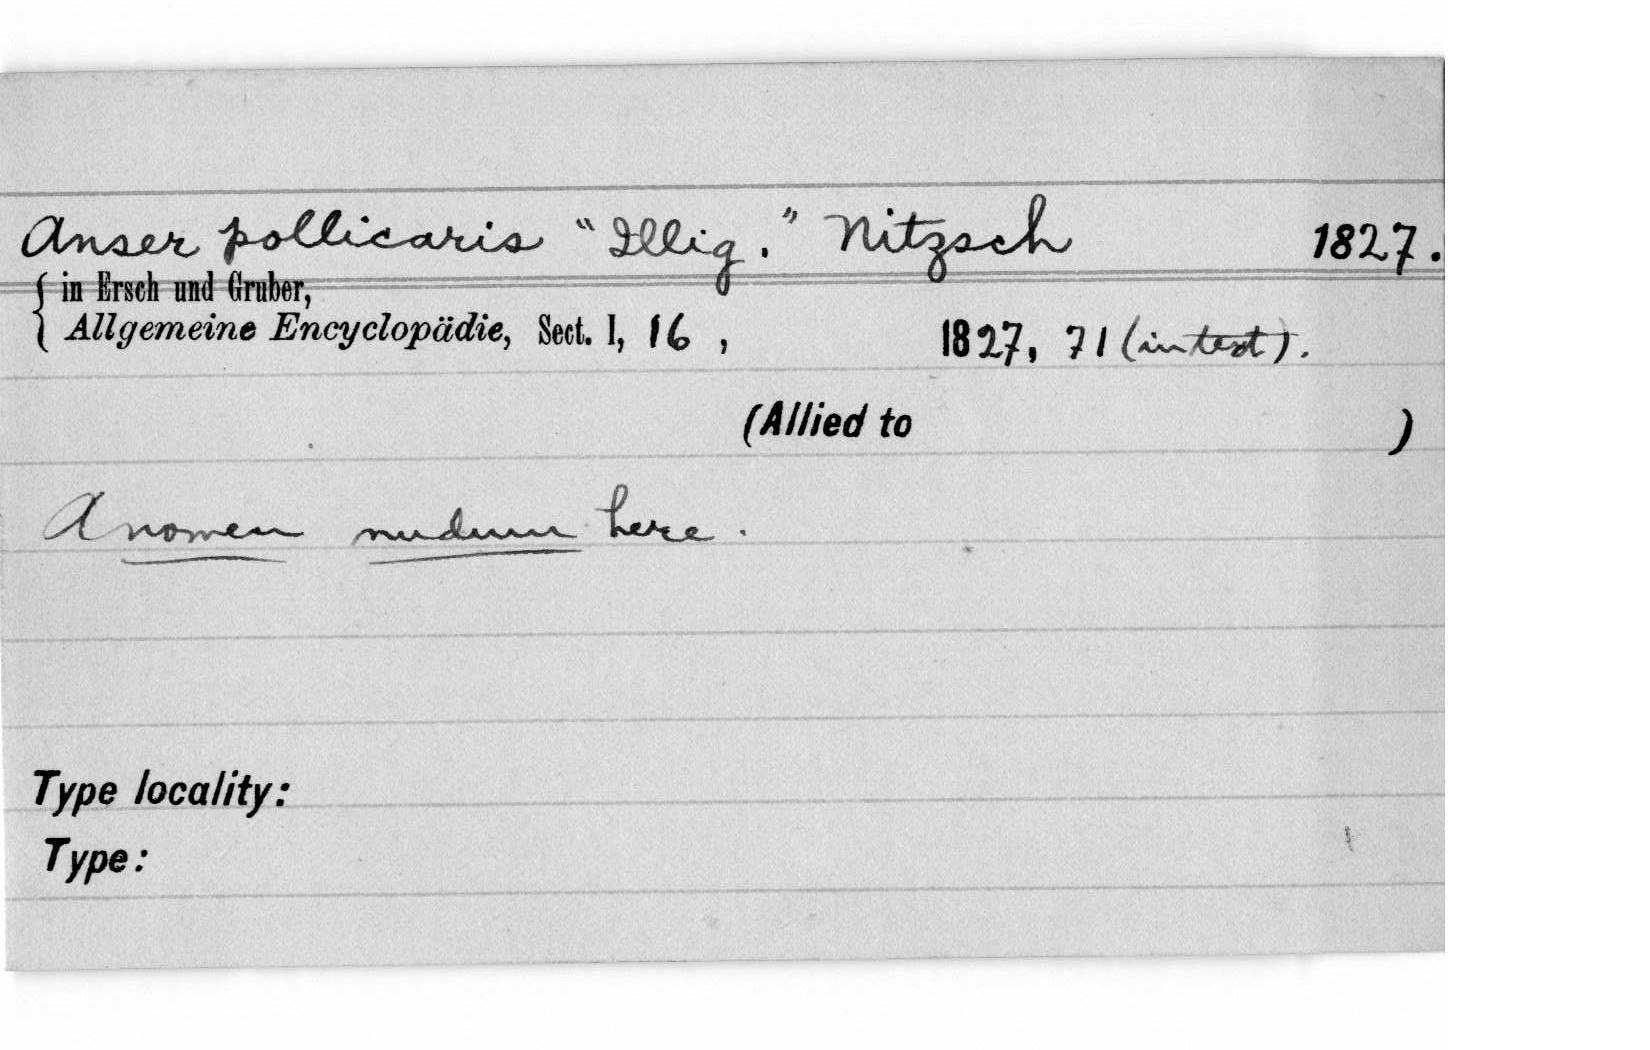 Anser pollicaris "Illig." Nitzsch 1827.
{ in Ersch und Gruber,
Allgemeine Encyclopädie, Sect. I, 16, 1827, 71 (in text).
(Allied to )
A nomen nudum here.
Type locality:
Type: